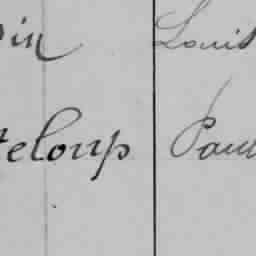 in Louis
eloup Paul